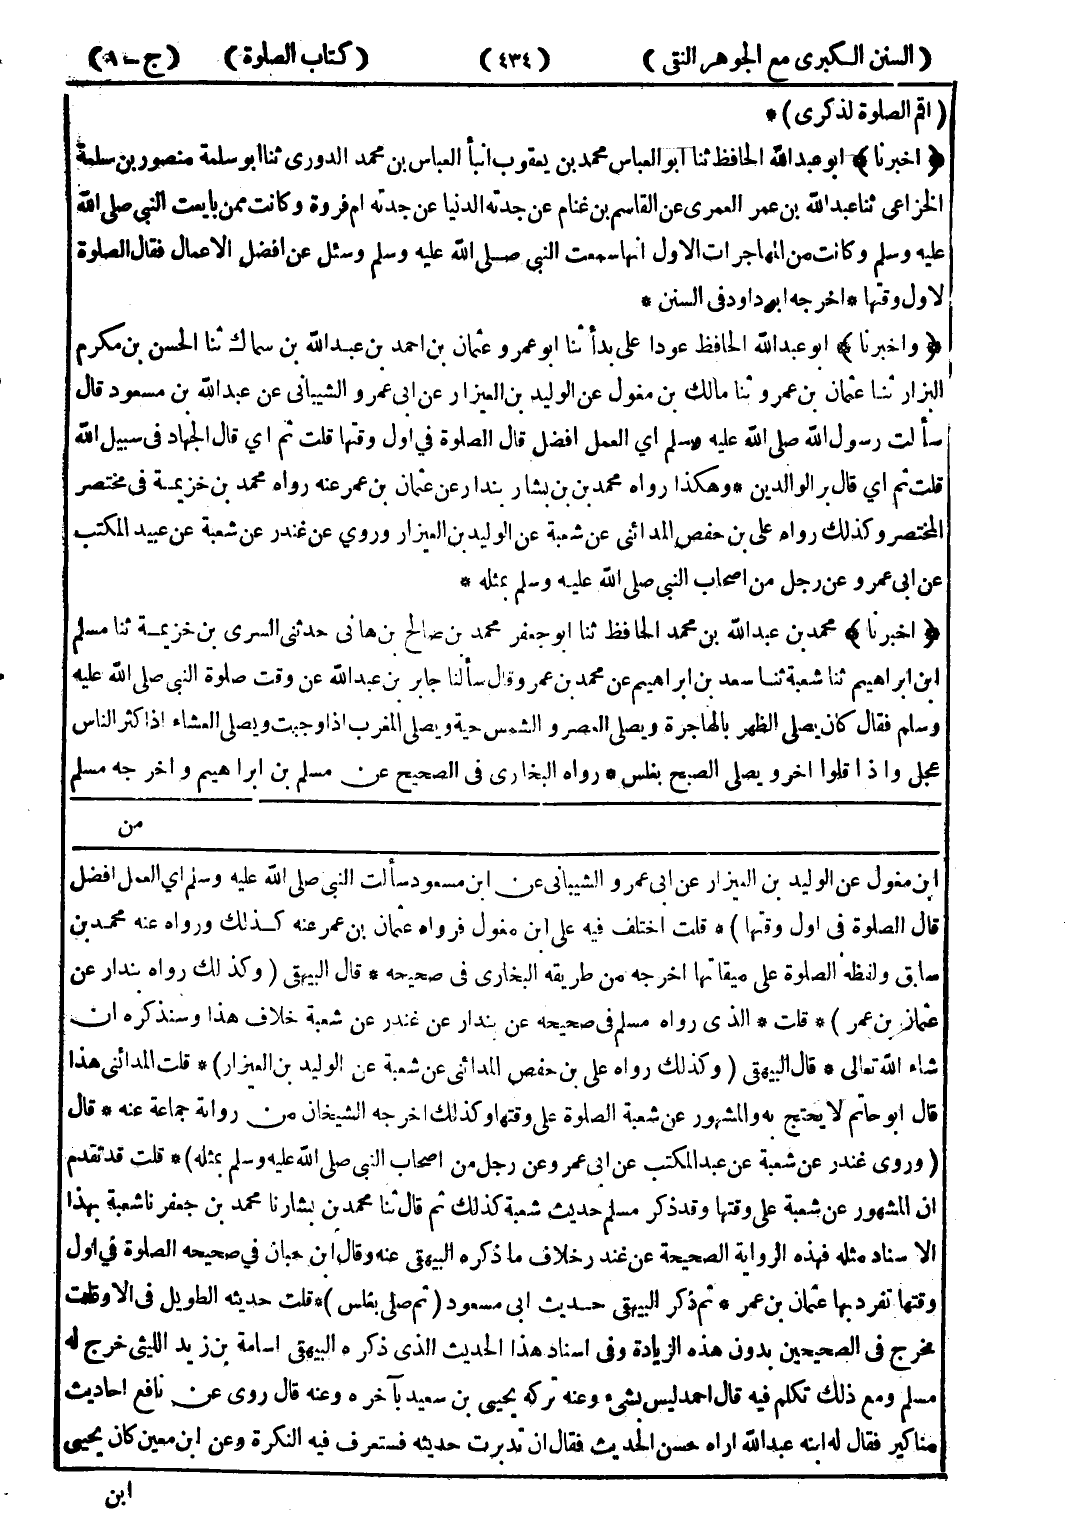 ( السنن الكبرى مع الجوهر النقى ) ( ٤٣٤ ) ( كتاب الصلوة ) ( ج - ١ )
( اقم الصلوة لذكرى ) *
﴿ اخبرنا ﴾ ابو عبدالله الحافظ ثنا ابو العباس محمد بن يعقوب انبأ العباس بن محمد الدورى ثنا ابو سلمة منصور بن سلمة
الخزاعى ثنا عبدالله بن عمر العمرى عن القاسم بن غنام عن جدته الدنيا عن جدته ام فروة وكانت ممن بايعت النبي صلى الله
عليه وسلم وكانت من المهاجرات الاول انها سمعت النبي صلى الله عليه وسلم وسئل عن افضل الاعمال فقال الصلوة
لاول وقتها * اخرجه ابو داود فى السنن *
﴿ واخبرنا ﴾ ابو عبدالله الحافظ عودا على بدأ ثنا ابو عمرو عثمان بن احمد بن عبدالله بن سماك ثنا الحسن بن مكرم
البزار ثنا عثمان بن عمرو ثنا مالك بن مغول عن الوليد بن العيزار عن ابى عمرو الشيبانى عن عبدالله بن مسعود قال
سألت رسول الله صلى الله عليه وسلم اي العمل افضل قال الصلوة في اول وقتها قلت ثم اي قال الجهاد فى سبيل الله
قلت ثم اي قال بر الوالدين * وهكذا رواه محمد بن بن بشار بندار عن عثمان بن عمر عنه رواه محمد بن خزيمة فى مختصر
المختصر وكذلك رواه على بن حفص المدائنى عن شعبة عن الوليد بن العيزار وروي عن غندر عن شعبة عن عبيد المكتب
عن ابى عمرو عن رجل من اصحاب النبي صلى الله عليه وسلم بمثله *
﴿ اخبرنا ﴾ محمد بن عبدالله بن محمد الحافظ ثنا ابو جعفر محمد بن صالح بن هانى حدثنى السرى بن خزيمة ثنا مسلم
ابن ابراهيم ثنا شعبة ثنا سعد بن ابراهيم عن محمد بن عمرو قال سألنا جابر بن عبدالله عن وقت صلوة النبي صلى الله عليه
وسلم فقال كان يصلى الظهر بالهاجرة ويصلى العصر والشمس حية ويصلى المغرب اذا وجبت ويصلى العشاء اذا كثر الناس
عجل واذا قلوا اخر ويصلى الصبح بغلس * رواه البخارى فى الصحيح عن مسلم بن ابراهيم واخرجه مسلم
من
ابن مغول عن الوليد بن العيزار عن ابى عمرو الشيبانى عن ابن مسعود سألت النبي صلى الله عليه وسلم اي العمل افضل
قال الصلوة فى اول وقتها ) * قلت اختلف فيه على ابن مغول فرواه عثمان بن عمر عنه كذلك ورواه عنه محمد بن
سابق ولفظه الصلوة على ميقاتها اخرجه من طريقه البخارى فى صحيحه * قال البيهقى ( وكذلك رواه بندار عن
عثمان بن عمر ) * قلت * الذى رواه مسلم فى صحيحه عن بندار عن غندر عن شعبة خلاف هذا وسنذكره ان
شاء الله تعالى * قال البيهقى ( وكذلك رواه على بن حفص المدائنى عن شعبة عن الوليد بن العيزار ) * قلت المدائنى هذا
قال ابو حاتم لا يحتج به والمشهور عن شعبة الصلوة على وقتها وكذلك اخرجه الشيخان من رواية جماعة عنه * قال
( وروى غندر عن شعبة عن عبد المكتب عن ابى عمرو عن رجل من اصحاب النبي صلى الله عليه وسلم بمثله ) * قلت قد تقدم
ان المشهور عن شعبة على وقتها وقد ذكر مسلم حديث شعبة كذلك ثم قال ثنا محمد بن بشار نا محمد بن جعفر نا شعبة بهذا
الاسناد مثله فهذه الرواية الصحيحة عن غندر خلاف ما ذكره البيهقى عنه وقال ابن حبان في صحيحه الصلوة في اول
وقتها تفرد بها عثمان بن عمر * ثم ذكر البيهقى حديث ابى مسعود ( ثم صلى بغلس ) * قلت حديثه الطويل فى الاوقات
مخرج فى الصحيحين بدون هذه الزيادة وفى اسناد هذا الحديث الذى ذكره البيهقى اسامة بن زيد الليثى خرج له
مسلم ومع ذلك تكلم فيه قال احمد ليس بشىء وعنه تركه يحيى بن سعيد بآخره وعنه قال روى عن نافع احاديث
مناكير فقال له ابنه عبدالله اراه حسن الحديث فقال ان تدبرت حديثه فستعرف فيه النكرة وعن ابن معين كان يحيى
ابن